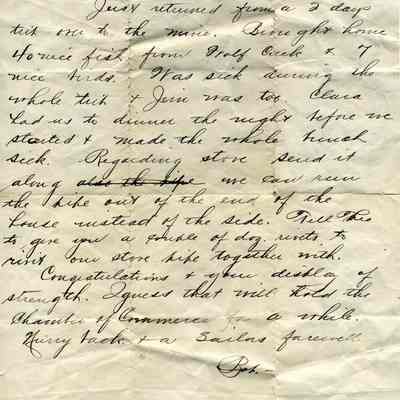 Just returned from a 2 days
trip over to the mine. Brought home
40 nice fish from Wolf Creek & 7
nice birds. Was sick during the
whole trip & Jim was too. Clara
had us to dinner the night before we
started & made the whole bunch
sick. Regarding stove send it
along also the pipe we can run
the pipe out of the end of the
house instead of the side. Tell
to give you a couple of doz. rivits to
rivit our stove pipe together with.
Congratulations & your display of
strength. I guess that will hold the
Chamber of Commerce for a while.
Hurry back & a Sailors farewell.
Bob